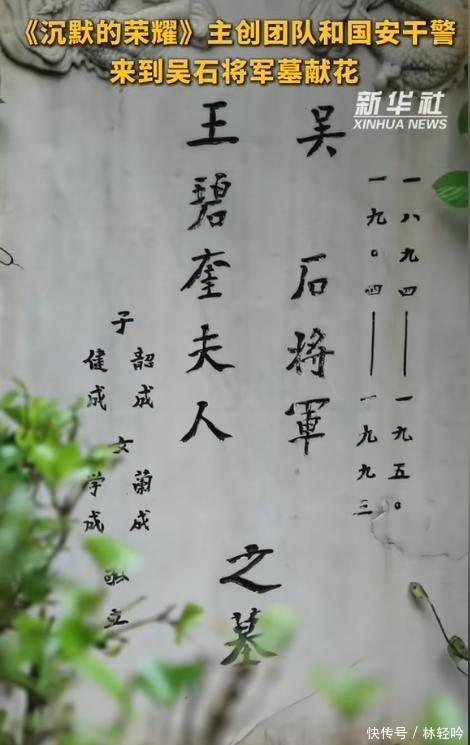 《沉默的荣耀》主创团队和国安干警
来到吴石将军墓献花
新华社
XINHUA NEWS
一八九四——一九五〇
一九〇四——一九九三
吴石將軍
王碧奎夫人
之墓
子 韶成
健成
女 蘭成
学成
敬立
快传号／林轻吟